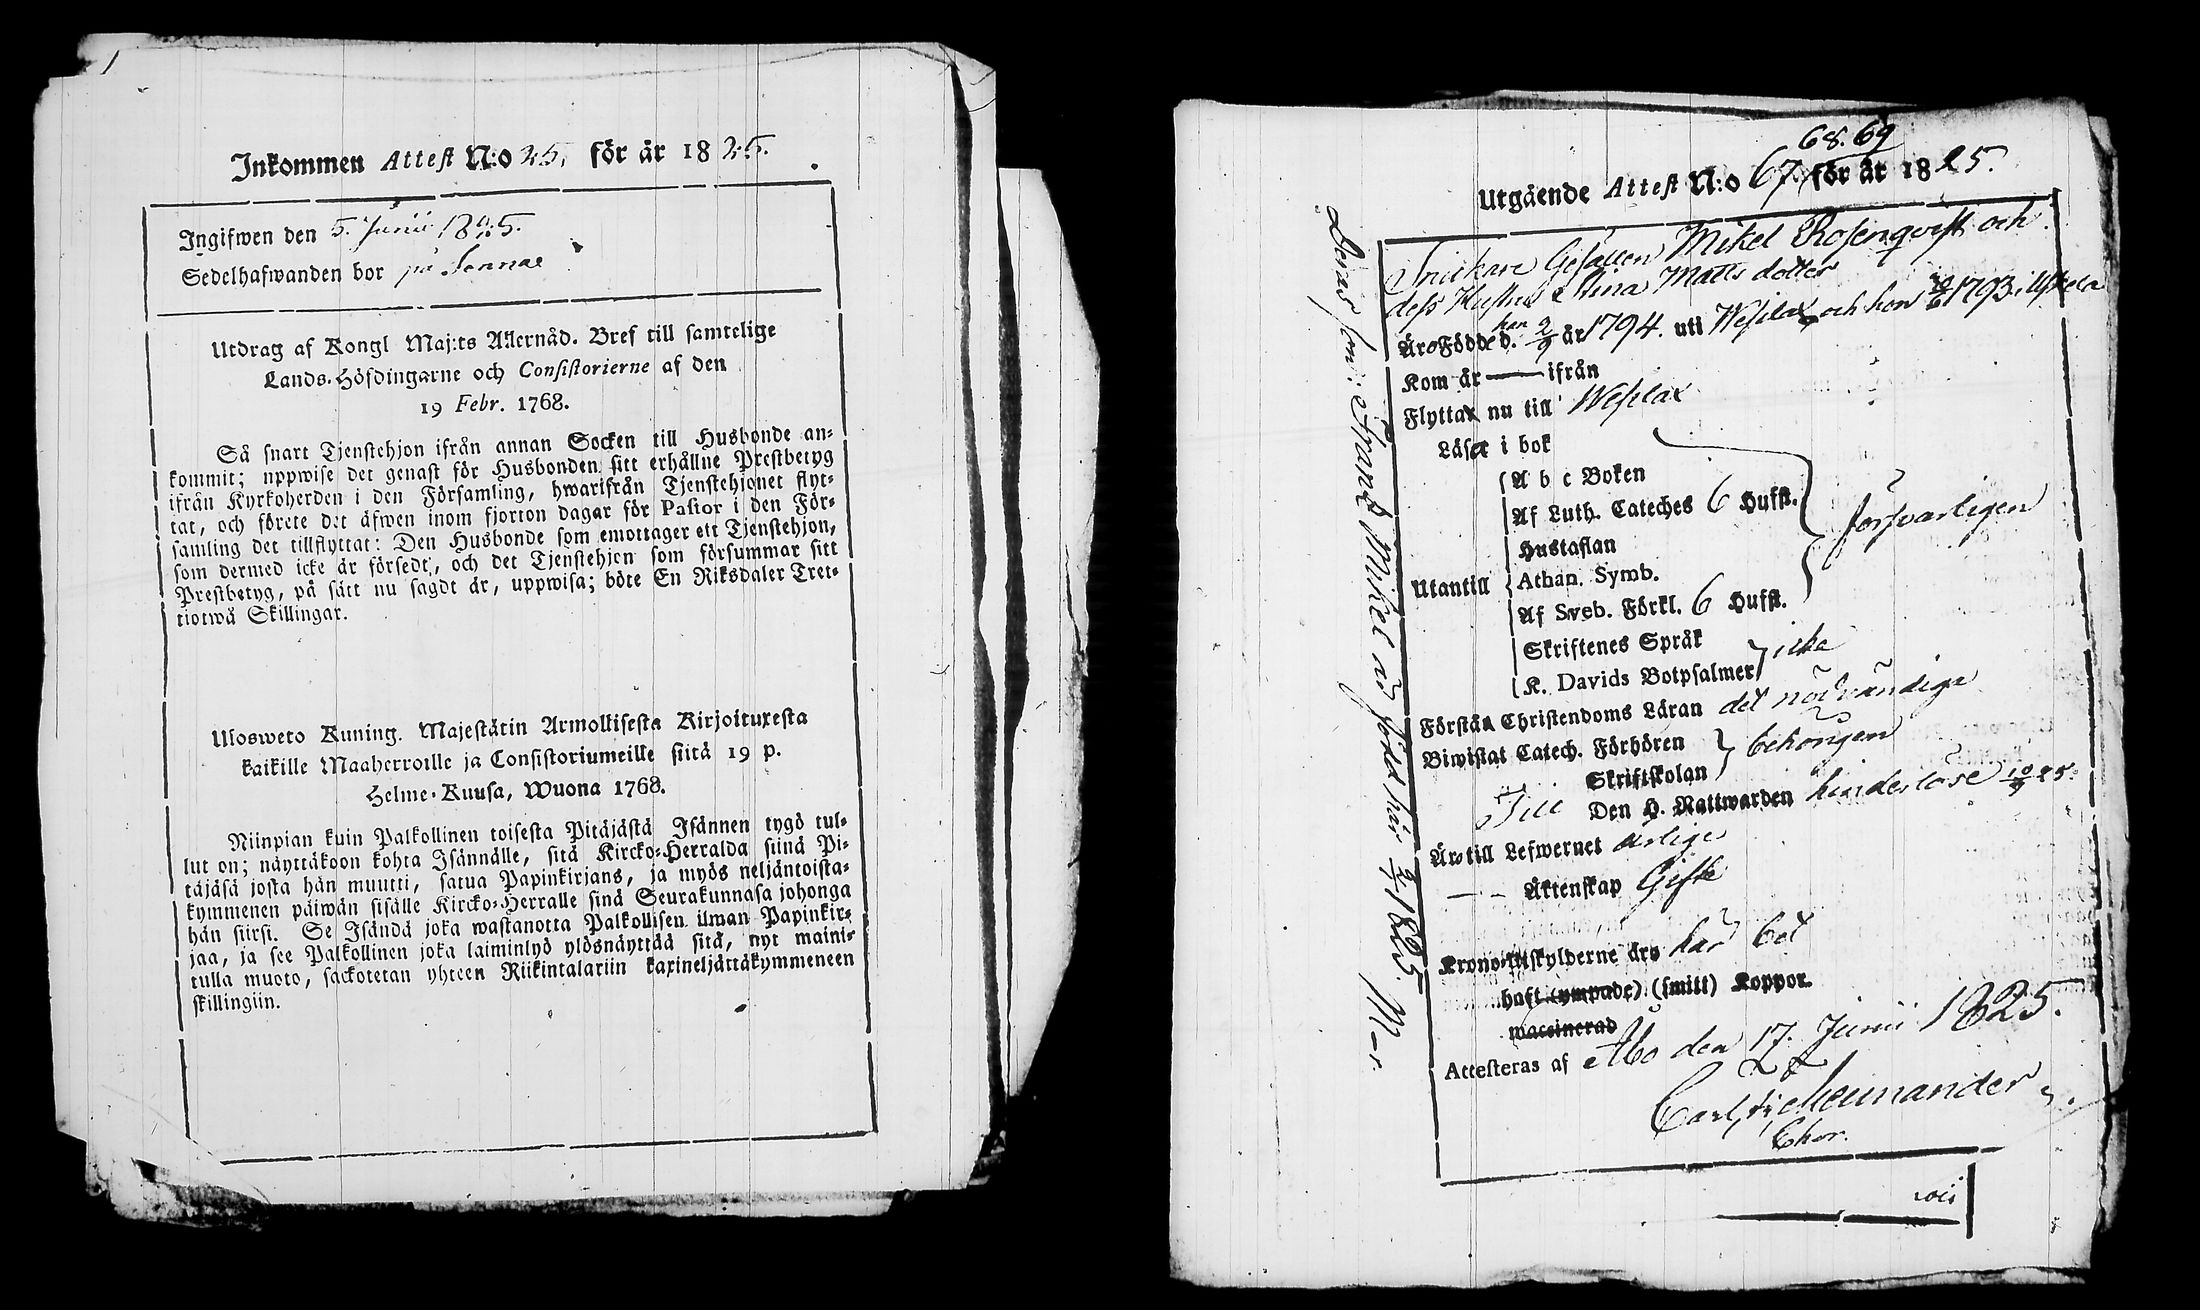 Inkommen Attest N:o 25, för år 1825.
Ingifwen den 5. Junii 1825.
Sedelhafwanden bor på
Utdrag af Kongl Maj:ts Allernåd. Bref till samtelige
Lands-Höfdingarne och Consistorierne af den
19 Febr. 1768.
Så snart Tjenstehjon ifrån annan Socken till Husbonde an-
kommit; uppwise det genast för Husbonden sitt erhållne Prestbetyg
ifrån Kyrkoherden i den Församling, hwarifrån Tjenstehjonet flyt-
tat, och förete det äfwen inom fjorton dagar för Pastor i den För-
samling det tillflyttat: Den Husbonde som emottager ett Tjenstehjon,
som dermed icke är försedt, och det Tjenstehjon som försummar sitt
Prestbetyg, på sätt nu sagdt är, uppwisa; böte En Riksdaler Tret-
tiotwå Skillingar.
Ulosweto Kuning. Majestätin Armollisesta Kirjoituxesta
kaikille Maaherroille ja Consistoriumeille siitä 19 p.
Helme-Kuusa, Wuona 1768.
Niinpian kuin Palkollinen toisesta Pitäjästä Isännen tygö tul-
lut on; näyttäkoon kohta Isännälle, sitä Kircko-Herralda siinä Pi-
täjäsä josta hän muutti, saatua Papinkirjans, ja myös neljäntoista-
kymmenen päiwän sisälle Kircko-Herralle sinä Seurakunnasa johonga
hän siirsi. Se Isändä joka wastanotta Palkollisen ilman Papinkir-
jaa, ja see Palkollinen joka laiminlyö ylösnäyttää sitä, nyt maini-
tulla muoto, sackotetan yhteen Riikintalariin kaxineljättäkymmeneen
skillingiin.
68.69
Utgående Attest N:o 67. för år 1825.
Snickare Gesällen Mikel Rosenqvist och
dess Hustru Stina Matts dotter
Äro Födde han d. 2/9 år 1794. uti Westlax och hon 1793. i
Kom år — ifrån
Flytta nu till Westlax
Läsa i bok
A b c Boken
Af Luth. Cateches 6 Hufst.
försvarligen
Hustaflan
Utantill
Athan. Symb.
Af Sveb. Förkl. 6 Hufst.
Skriftenes Språk
icke
K. Davids Botpsalmer
Förstå Christendoms Läran det nödvändiga
Biwistat Catech. Förhören
behörigen
Skriftskolan
Till Den H. Nattwarden hinderlöse 10/4 25.
Äro till Lefwernet ärlige
— — Äktenskap Gifte
Krono-Utskylderne äro här bet
haft (ympade) (smitt) Koppor.
waccinerad
Attesteras af Åbo den 17. Junii 1825.
Carl Fr. Mennander
Deras son: Frans Mikel är född här 2/2 1825. M—r